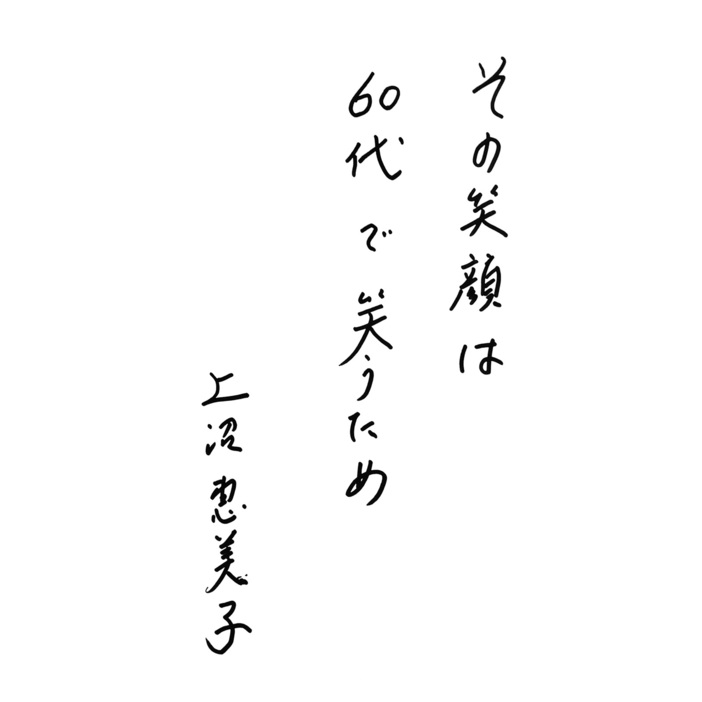 その笑顔は
60代で笑うため
上沼恵美子